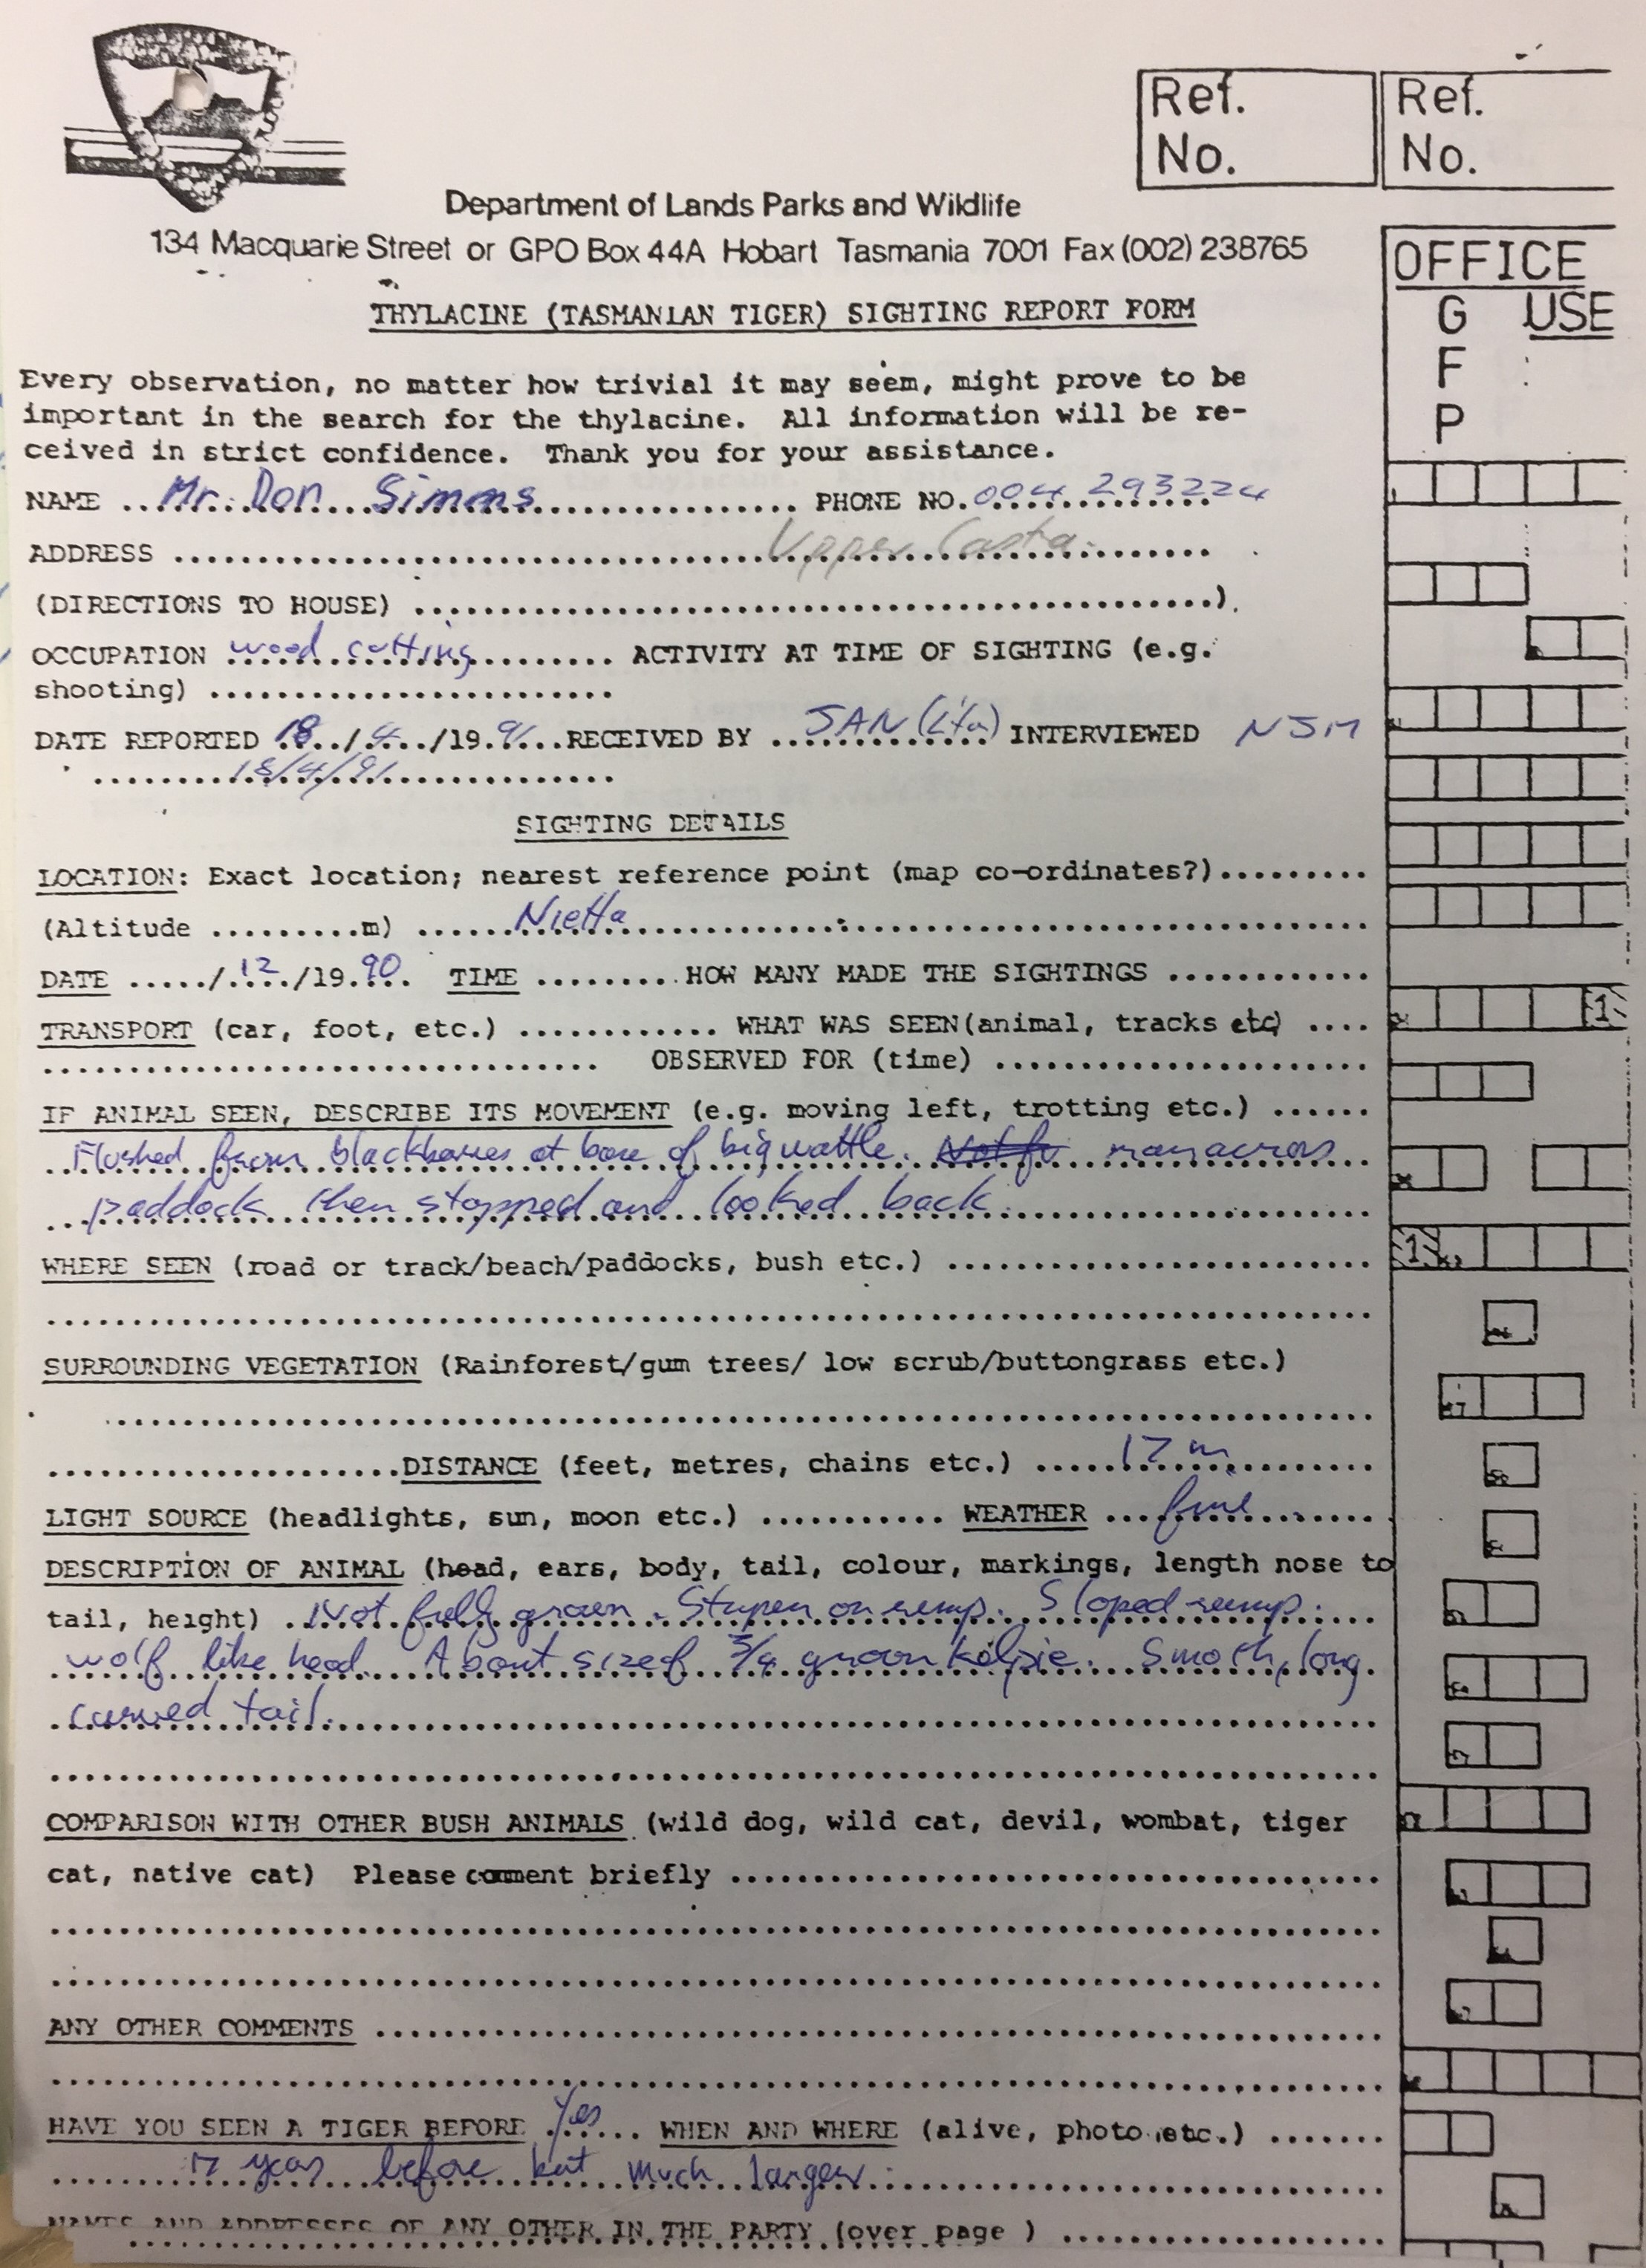 Ref. No.
Ref. No.
Department of Lands Parks and Wildlife
134 Macquarie Street or GPO Box 44A Hobart Tasmania 7001 Fax (002) 238765
OFFICE USE
G
F
P
THYLACINE (TASMANIAN TIGER) SIGHTING REPORT FORM
Every observation, no matter how trivial it may seem, might prove to be
important in the search for the thylacine. All information will be re-
ceived in strict confidence. Thank you for your assistance.
NAME Mr. Don Simms PHONE NO. 004 293224
ADDRESS Upper Casta
(DIRECTIONS TO HOUSE)
OCCUPATION wood cutting ACTIVITY AT TIME OF SIGHTING (e.g.
shooting)
DATE REPORTED 18/4/19.91 RECEIVED BY INTERVIEWED NJM
18/4/91
SIGHTING DETAILS
LOCATION: Exact location; nearest reference point (map co-ordinates?)
(Altitude m) Nietta
DATE /12/19.90. TIME HOW MANY MADE THE SIGHTINGS
TRANSPORT (car, foot, etc.) WHAT WAS SEEN (animal, tracks etc)
OBSERVED FOR (time)
IF ANIMAL SEEN, DESCRIBE ITS MOVEMENT (e.g. moving left, trotting etc.)
Flushed from blackberries at base of big wattle. across
paddock then stopped and looked back.
WHERE SEEN (road or track/beach/paddocks, bush etc.)
SURROUNDING VEGETATION (Rainforest/gum trees/ low scrub/buttongrass etc.)
DISTANCE (feet, metres, chains etc.) 17 m.
LIGHT SOURCE (headlights, sun, moon etc.) WEATHER fine
DESCRIPTION OF ANIMAL (head, ears, body, tail, colour, markings, length nose to
tail, height) Not fully grown. Stripes on rump. Sloped rump.
wolf like head. About size of 3/4 grown kelpie. Smooth, long
curved tail.
COMPARISON WITH OTHER BUSH ANIMALS (wild dog, wild cat, devil, wombat, tiger
cat, native cat) Please comment briefly
ANY OTHER COMMENTS
HAVE YOU SEEN A TIGER BEFORE Yes WHEN AND WHERE (alive, photo etc.)
17 years before but much larger.
NAMES AND ADDRESSES OF ANY OTHER IN THE PARTY (over page )